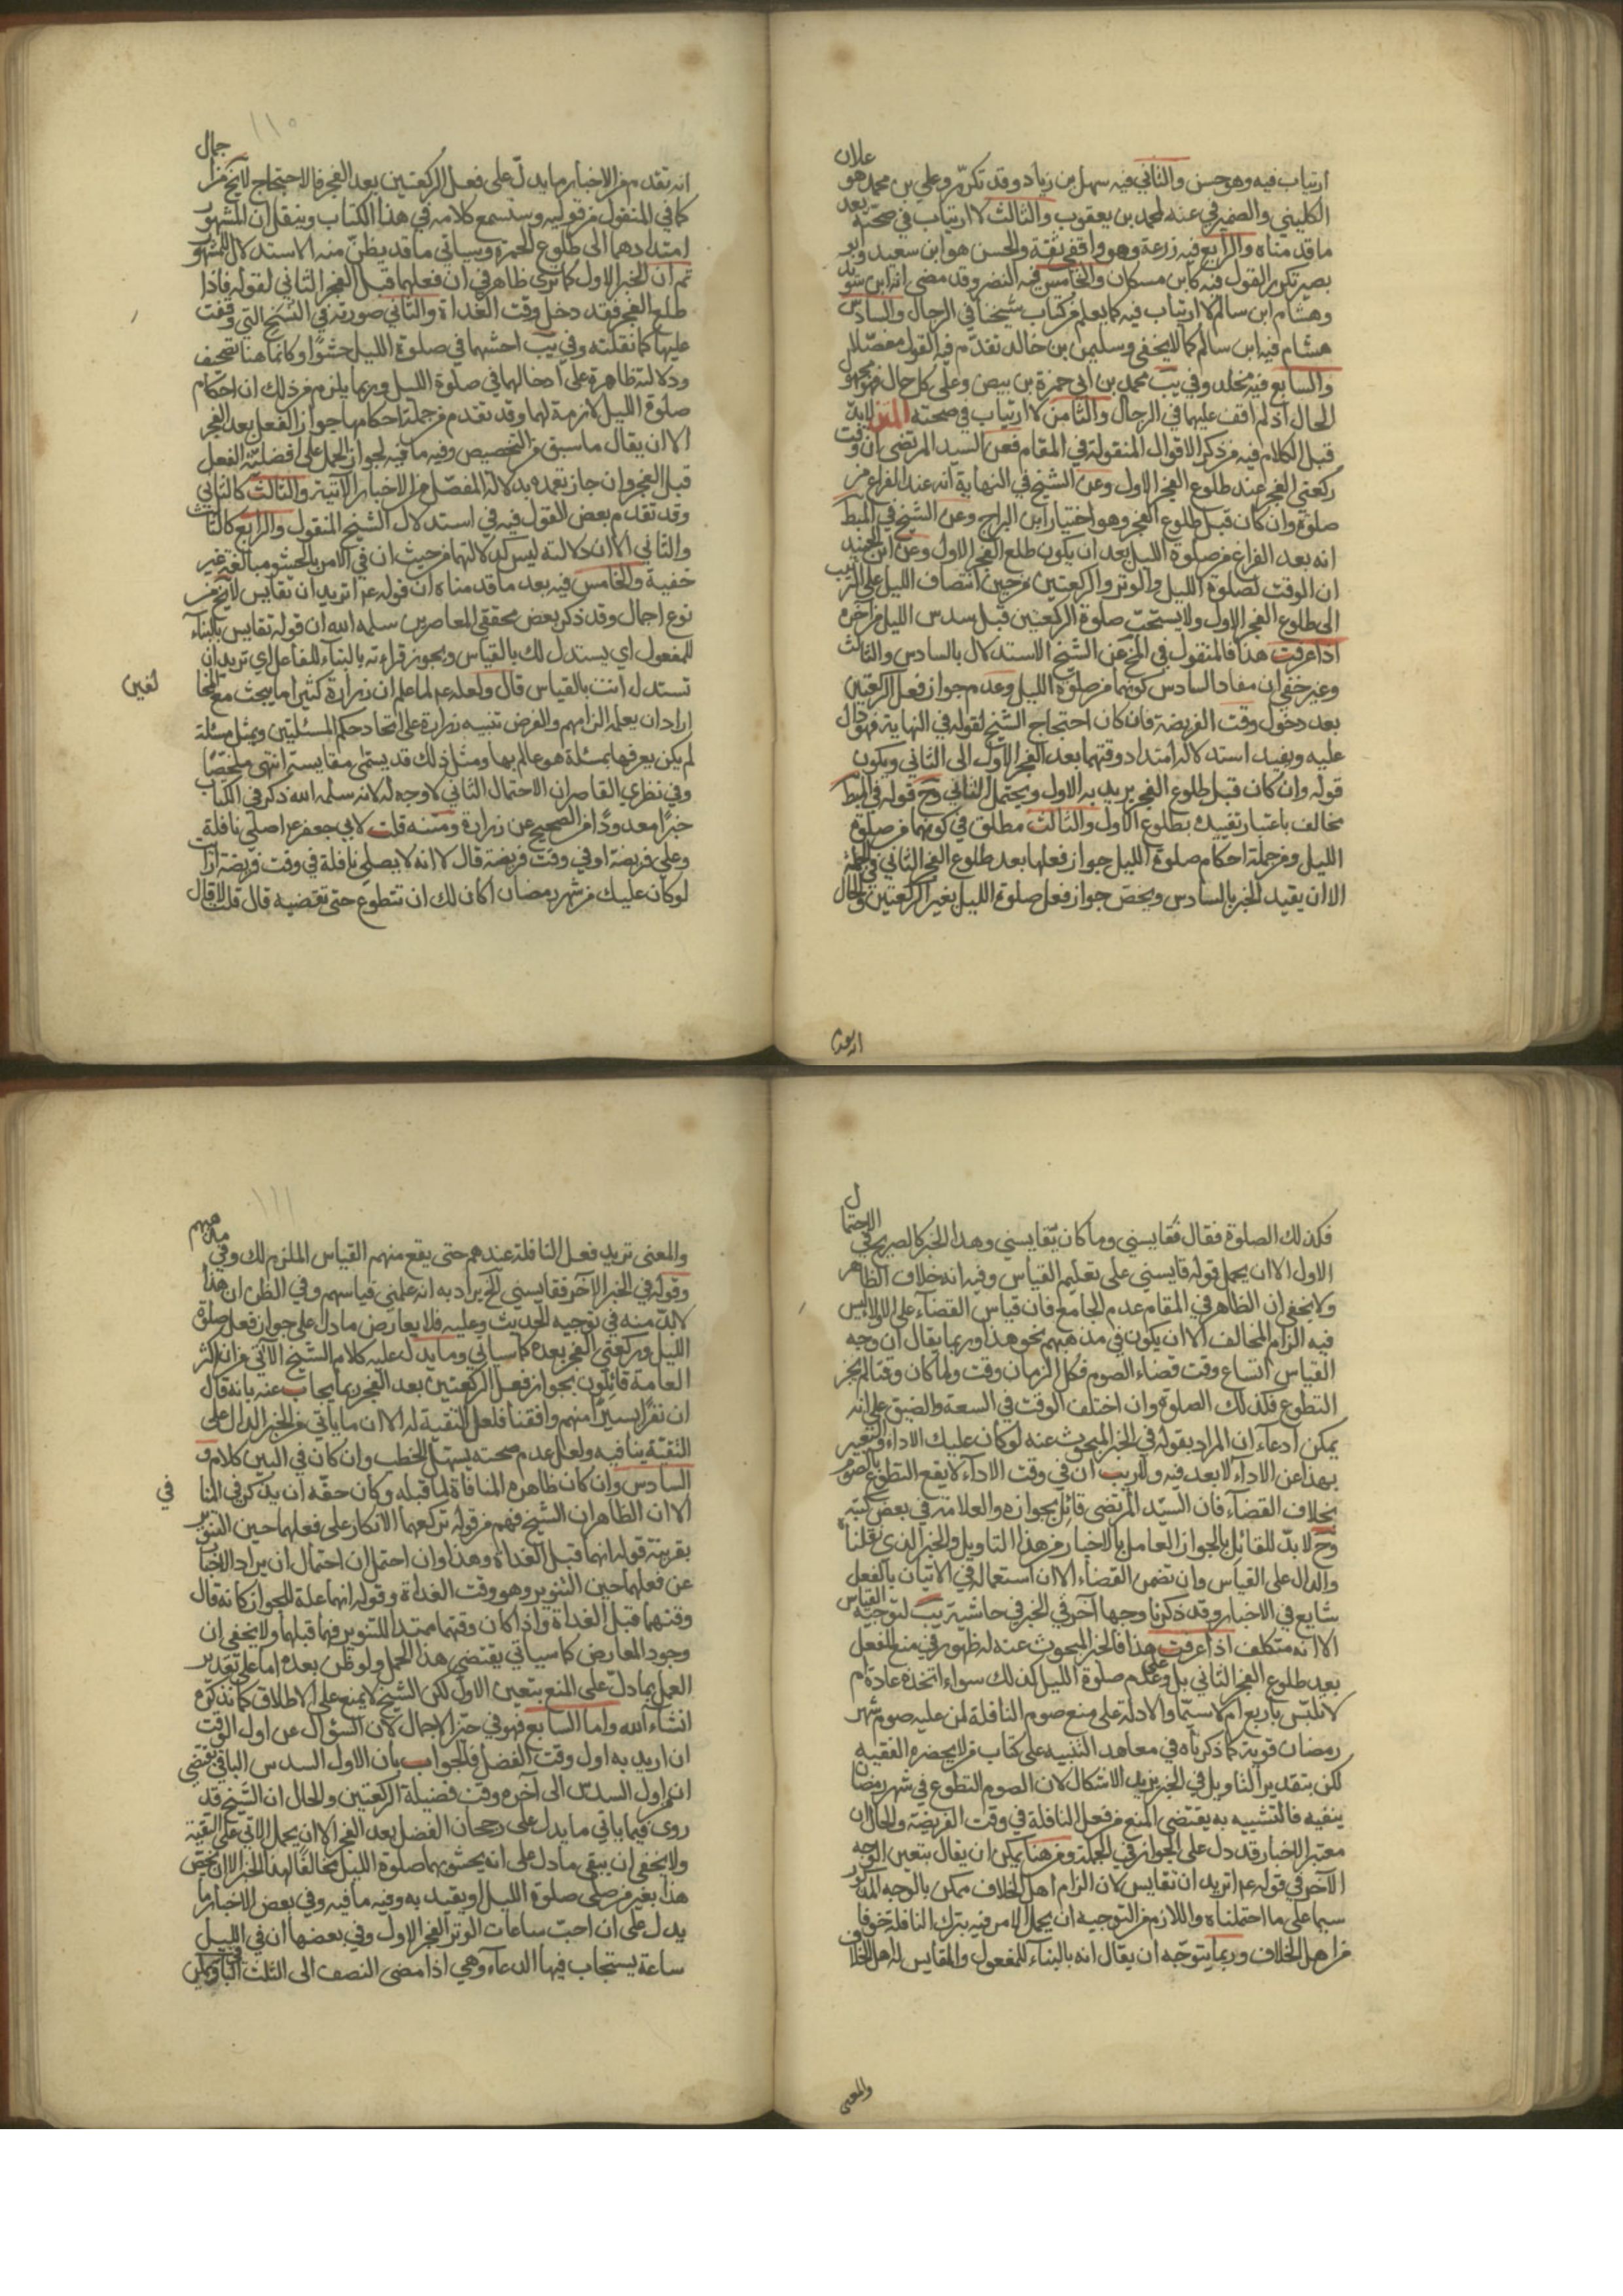 علان
ارتياب فيه وهو حسن والثاني فيه سهل بن زياد وقد تكرّر وعلي بن محمد هو
الكليني والضمير في عنه لمحمد بن يعقوب والثالث لا ارتياب في صحته بعد
ما قدمناه والرابع فيه زرعة وهو واقفي ثقة والحسن هو ابن سعيد وابو
بصير تكرر القول فيه كابن مسكان والخامس فيه النضر وقد مضى انه ابن سويد
وهشام ابن سالم لا ارتياب فيه كما يعلم من كتاب شيخنا في الرجال والسادس
هشام فيه ابن سالم كما لا يخفى وسليمن بن خالد تقدّم فيه القول مفصّلا
والسابع فيه مخلد وفي يب محمد بن ابي حمزة بن بيض وعلى كل حال فهو مجهول
الحال اذ لم اقف عليهما في الرجال والثامن لا ارتياب في صحته المتن لا بدّ
قبل الكلام فيه من ذكر الاقوال المنقولة في المقام فعن السيد المرتضى ان وقت
ركعتي الفجر عند طلوع الفجر الاول وعن الشيخ في النهاية انه عند الفراغ من
صلوة وان كان قبل طلوع الفجر وهو اختيار ابن البراج وعن الشيخ في المبط
انه بعد الفراغ من صلوة الليل بعد ان يكون طلع الفجر الاول وعن ابن الجنيد
ان الوقت لصلوة الليل والوتر والركعتين من حين انتصاف الليل على الترتيب
الى طلوع الفجر الاول ولا يستحبّ صلوة الركعتين قبل سدس الليل من آخره
اذا عرفت هذا فالمنقول في المخ عن الشيخ الاستدلال بالسادس والثالث
وغير خفي ان مفاد السادس كونهما من صلوة الليل وعدم جواز فعل الركعتين
بعد دخول وقت الفريضة فان كان احتجاج الشيخ لقوله في النهاية فهو دال
عليه ويفيد استدلاله امتداد وقتهما بعد الفجر الاول الى الثاني ويكون
قوله وان كان قبل طلوع الفجر يريد به الاول ويحتمل الثاني وح قوله في المبط
مخالف باعتبار تقييده بطلوع الاول والثالث مطلق في كونهما من صلوة
الليل ومن جملة احكام صلوة الليل جواز فعلها بعد طلوع الفجر الثاني في الجملة
الا ان يقيد الخبر بالسادس ويخص جواز فعل صلوة الليل بغير الركعتين والحال
١١٠
جمال
انه تقدم من الاخبار ما يدلّ على فعل الركعتين بعد الفجر فالاحتجاج لا يخ من
كما في المنقول من قوليه وستسمع كلامه في هذا الكتاب وينقل ان المشهور
امتدادهما الى طلوع الحمرة وسياتي ما قد يظنّ منه الاستدلال للمشهور
ثم ان الخبر الاول كما ترى ظاهر في ان فعلهما قبل الفجر الثاني لقوله فاذا
طلع الفجر فقد دخل وقت الغداة والثاني صورته في النسخ التي وقفت
عليها كما نقلته وفي يب احشهما في صلوة الليل حشوًا وكانما هنا تصحيف
ودلالته ظاهرة على ادخالهما في صلوة الليل وربما يلزم من ذلك ان احكام
صلوة الليل لازمة لهما وقد تقدم من جملة احكامها جواز الفعل بعد الفجر
الا ان يقال ما سبق من التخصيص وفيه ما فيه لجواز الحمل على افضلية الفعل
قبل الفجر وان جاز بعده بدلالة المفصّل من الاخبار الآتية والثالث كالثاني
وقد تقدم بعض القول فيه في استدلال الشيخ المنقول والرابع كالثالث
والثاني الا ان دلالته ليس كدلالتهما من حيث ان في الامر بالحشو مبالغة غير
خفية والخامس فيه بعد ما قدمناه ان قوله ع اتريد ان تقايس لا يخ من
نوع اجمال وقد ذكر بعض محققي المعاصرين سلمه الله ان قوله تقايس بالبناء
للمفعول اي يستدل لك بالقياس ويجوز قراءته بالبناء للفاعل اي تريد ان
تستدل انت بالقياس قال ولعله ع لما علم ان زرارة كثيرا ما يبحث مع المخا
لفين
اراد ان يعلمه الزامهم والغرض تنبيه زرارة على اتحاد حكم المسئلتين ويمثل مسئلة
لم يكن يعرفها بمسئلة هو عالم بها ومثل ذلك قد يسمى مقايسة انتهى ملخصًا
وفي نظري القاصر ان الاحتمال الثاني لا وجه له لانه سلمه الله ذكر في الكتاب
خبرًا معدودًا من الصحيح عن زرارة ومتنه قلت لابي جعفر ع اصلي نافلة
وعلي فريضة او في وقت فريضة قال لا انه لا يصلى نافلة في وقت فريضة ارايت
لو كان عليك من شهر رمضان اكان لك ان تتطوع حتى تقضيه قال قلت لا قال
فكذلك الصلوة فقال فقايسني وما كان يقايسني وهذا الخبر كالصريح في الاحتمال
الاول الا ان يحمل قوله قايسني على تعليم القياس وفيه انه خلاف الظاهر
ولا يخفى ان الظاهر في المقام عدم الجامع فان قياس القضاء على الاداء ليس
فيه الزام المخالف الا ان يكون في مذهبهم نحو هذا وربما يقال ان وجه
القياس اتساع وقت قضاء الصوم فكل الزمان وقت ولما كان وقتا لم يجز
التطوع فكذلك الصلوة وان اختلف الوقت في السعة والضيق على انه
يمكن ادعاء ان المراد بقوله في الخبر المبحوث عنه لو كان عليك الاداء والتعبير
بهذا عن الاداء لا بعد فيه ولا ريب ان في وقت الاداء لا يقع التطوع بالصوم
بخلاف القضاء فان السيّد المرتضى قائل بجوازه والعلامة في بعض كتبه
وح لا بدّ للقائل بالجواز العامل بالاخبار من هذا التاويل والخبر الذي نقلناه
والدال على القياس وان تضمن القضاء الا ان استعماله في الاتيان بالفعل
شايع في الاخبار وقد ذكرنا وجها آخر في الخبر في حاشية يب لتوجيه القياس
الا انه متكلف اذا عرفت هذا فالخبر المبحوث عنه له ظهور في منع الفعل
بعد طلوع الفجر الثاني بل وعلى عدم صلوة الليل كذلك سواء اتخذه عادة ام
لا تلبّس باربع ام لا سيّما والادلة على منع صوم النافلة لمن عليه صوم شهر
رمضان قوية كما ذكرناه في معاهد التنبيه على كتاب من لا يحضره الفقيه
لكن بتقدير التاويل في الخبر يزيد الاشكال لان الصوم التطوع في شهر رمضان
ينفيه فالتشبيه به يقتضي المنع من فعل النافلة في وقت الفريضة والحال ان
معتبر الاخبار قد دل على الجواز في الجملة ومن هنا يمكن ان يقال بتعين الوجه
الآخر في قوله ع اتريد ان تقايس لان الزام اهل الخلاف ممكن بالوجه المذكور
سيما على ما احتملناه واللازم من التوجيه ان يحمل الامر فيه بترك النافلة خوفا
من اهل الخلاف وربما يتوجّه ان يقال انه بالبناء للمفعول والمقايس له اهل الخلاف
والمعنى
١١١
والمعنى تريد فعل النافلة عندهم حتى يقع منهم القياس الملزم لك وفي
وقوله في الخبر الآخر فقايسني الخ يراد به انه علمني قياسهم وفي الظن ان هذا
لا بدّ منه في توجيه الحديث وعليه فلا يعارض ما دل على جواز فعل صلوة
الليل وركعتي الفجر بعده كما سياتي وما يدل عليه كلام الشيخ الآتي من انه اكثر
العامة قائلون بجواز فعل الركعتين بعد الفجر ربما يجاب عنه بانه قال
ان نفرًا يسيرًا منهم وافقنا فلعل التقية له الا ان ما ياتي من الخبر الدال على
التقيّة ينافيه ولعل عدم صحته يسهل الخطب وان كان في البين كلام و
السادس وان كان ظاهره المنافاة لما قبله وكان حقّه ان يذكر في المنا
في
الا ان الظاهر ان الشيخ فهم من قوله تركعهما الانكار على فعلهما حين التنوير
بقرينة قوله انهما قبل الغداة وهذا وان احتمل ان احتمال ان يراد الاخبار
عن فعلهما حين التنوير وهو وقت الغداة وقوله انهما علة للجواز كانه قال
وقتهما قبل الغداة واذا كان وقتهما ممتد للتنوير فهما قبلها ولا يخفى ان
وجود المعارض كما سياتي يقتضي هذا الحمل ولو ظن بعده اما على تقدير
العمل بما دلّ على المنع بتعين الاول لكن الشيخ لا يمنع على الاطلاق كما نذكره
انشاء الله واما السابع فهو في حيّز الاجمال لان السؤال عن اول الوقت
ان اريد به اول وقت الفضل فالجواب بان الاول السدس الباقي يقتضي
ان من اول السدس الى آخره وقت فضيلة الركعتين والحال ان الشيخ قد
روى فيما ياتي ما يدل على رجحان الفضل بعد الفجر الا ان يحمل الآتي على التقية
ولا يخفى ان يبقى ما دل على انه يحشو بهما صلوة الليل مخالفًا لهذا الخبر الا ان يخص
هذا بغير من صلى صلوة الليل او يقيد به وفيه ما فيه وفي بعض الاخبار ما
يدل على ان احبّ ساعات الوتر الفجر الاول وفي بعضها ان في الليل
ساعة يستجاب فيها الدعاء وهي اذا مضى النصف الى الثلث الباقي ويمكن